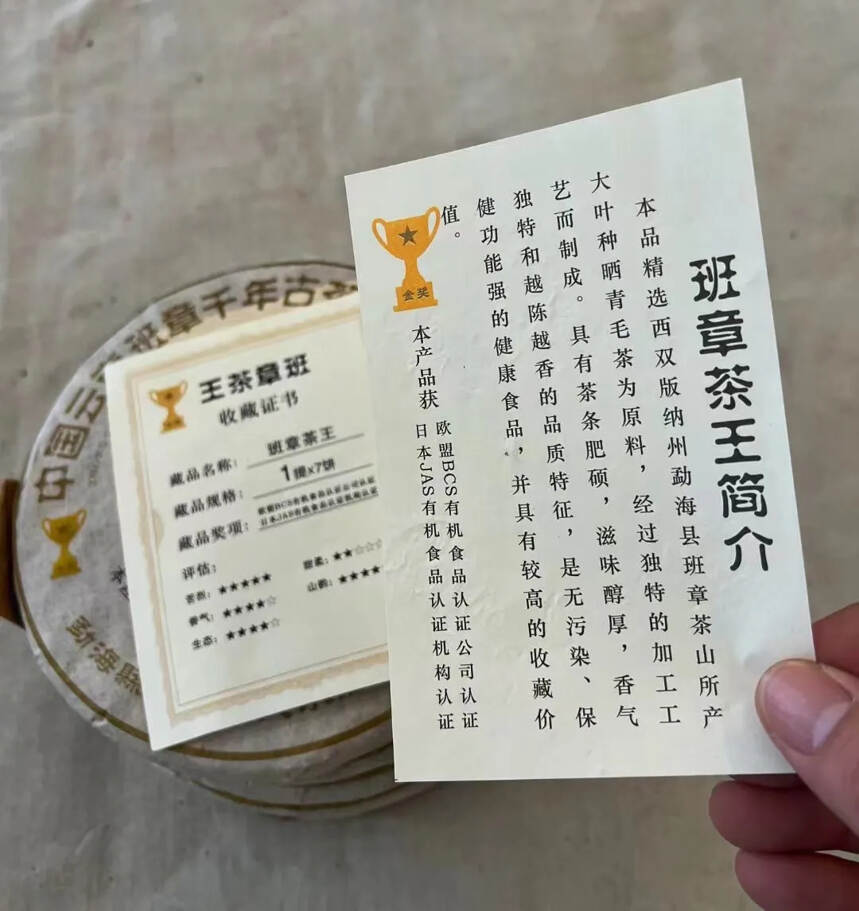 班章茶王简介
本品精选西双版纳州勐海县班章茶山所产
大叶种晒青毛茶为原料，经过独特的加工工
艺而制成。具有茶条肥硕，滋味醇厚，香气
独特和越陈越香的品质特征，是无污染、保
健功能强的健康食品，并具有较高的收藏价
值。
金奖
本产品获
欧盟BCS有机食品认证公司认证
日本JAS有机食品认证机构认证
王茶章班
收藏证书
藏品名称：班章茶王
藏品规格：1提x7饼
藏品奖项：欧盟BCS有机食品认证公司认证
日本JAS有机食品认证机构认证
评估：
苦烈：★★★★★
甜柔：★★☆☆
香气：★★★★☆
山韵：★★★★
生态：★★★★☆
中国云
班章千年古
勐海县